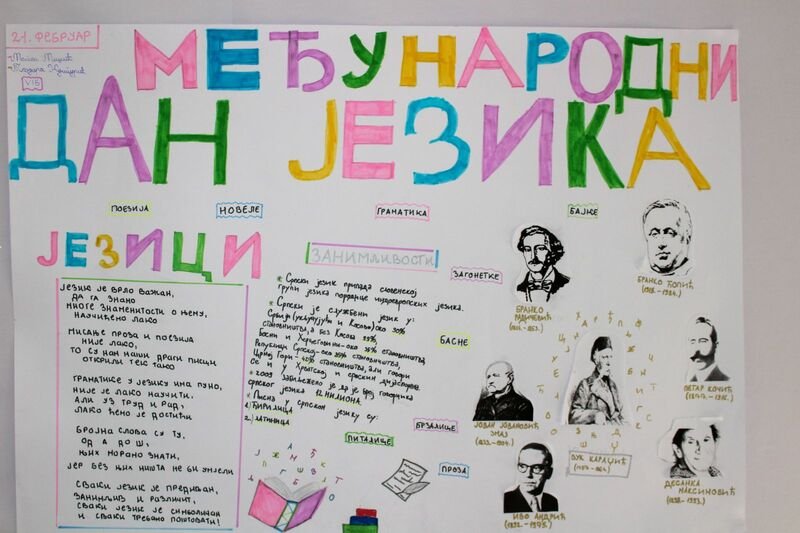 21. ФЕБРУАР
VI6
МЕЂУНАРОДНИ
ДАН ЈЕЗИКА
ПОЕЗИЈА
НОВЕЛЕ
ГРАМАТИКА
БАЈКЕ
ЈЕЗИЦИ
ЈЕЗИК ЈЕ ВРЛО ВАЖАН,
ДА ГА ЗНАМО
МНОГЕ ЗНАМЕНИТОСТИ О ЊЕМУ,
НАУЧИЋЕМО ЛАКО
ПИСАЊЕ ПРОЗА И ПОЕЗИЈА
НИЈЕ ЛАКО,
ТО СУ НАМ НАШИ ДРАГИ ПИСЦИ
ОТКРИЛИ ТЕК ТАКО
ГРАМАТИКЕ У ЈЕЗИКУ ИМА ПУНО,
НИЈЕ ЈЕ ЛАКО НАУЧИТИ.
АЛИ УЗ ТРУД И РАД,
ЛАКО ЋЕМО ЈЕ ДОСТИЋИ
БРОЈНА СЛОВА СУ ТУ,
ОД А ДО Ш,
ЊИХ МОРАМО ЗНАТИ,
ЈЕР БЕЗ ЊИХ НИШТА НЕ БИ УМЈЕЛИ
СВАКИ ЈЕЗИК ЈЕ ПРЕДИВАН,
ЗАНИМЉИВ И РАЗЛИЧИТ,
СВАКИ ЈЕЗИК ЈЕ СИМБОЛИЧАН
И СВАКИ ТРЕБАМО ПОШТОВАТИ!
ЗАНИМЉИВОСТИ
* Српски језик припада словенској
групи језика породице индоевропских језика.
* Српски је службени језик у:
Србији (укључујући и Косово) око 90%
становништва, а без Косова 99%
Босни и Херцеговини - око 36% становништва,
Републици Српској - око 99% становништва,
Црној Гори - 40% становништва, али говори
се и у Хрватској и српским дијаспорама
* 2009 забиљежено је да је број говорника
српског језика 12 МИЛИОНА.
* Писма у српском језику су:
1.) ЋИРИЛИЦА
2.) ЛАТИНИЦА
ЗАГОНЕТКЕ
БАСНЕ
БРЗАЛИЦЕ
ПИТАЛИЦЕ
ПРОЗА
БРАНКО
РАДИЧЕВИЋ
БРАНКО ЋОПИЋ
ПЕТАР КОЧИЋ
ЈОВАН ЈОВАНОВИЋ
ЗМАЈ
(1833.-1904.)
ВУК КАРАЏИЋ
ДЕСАНКА
МАКСИМОВИЋ
(1898.-1993.)
ИВО АНДРИЋ
(1892.-1975.)